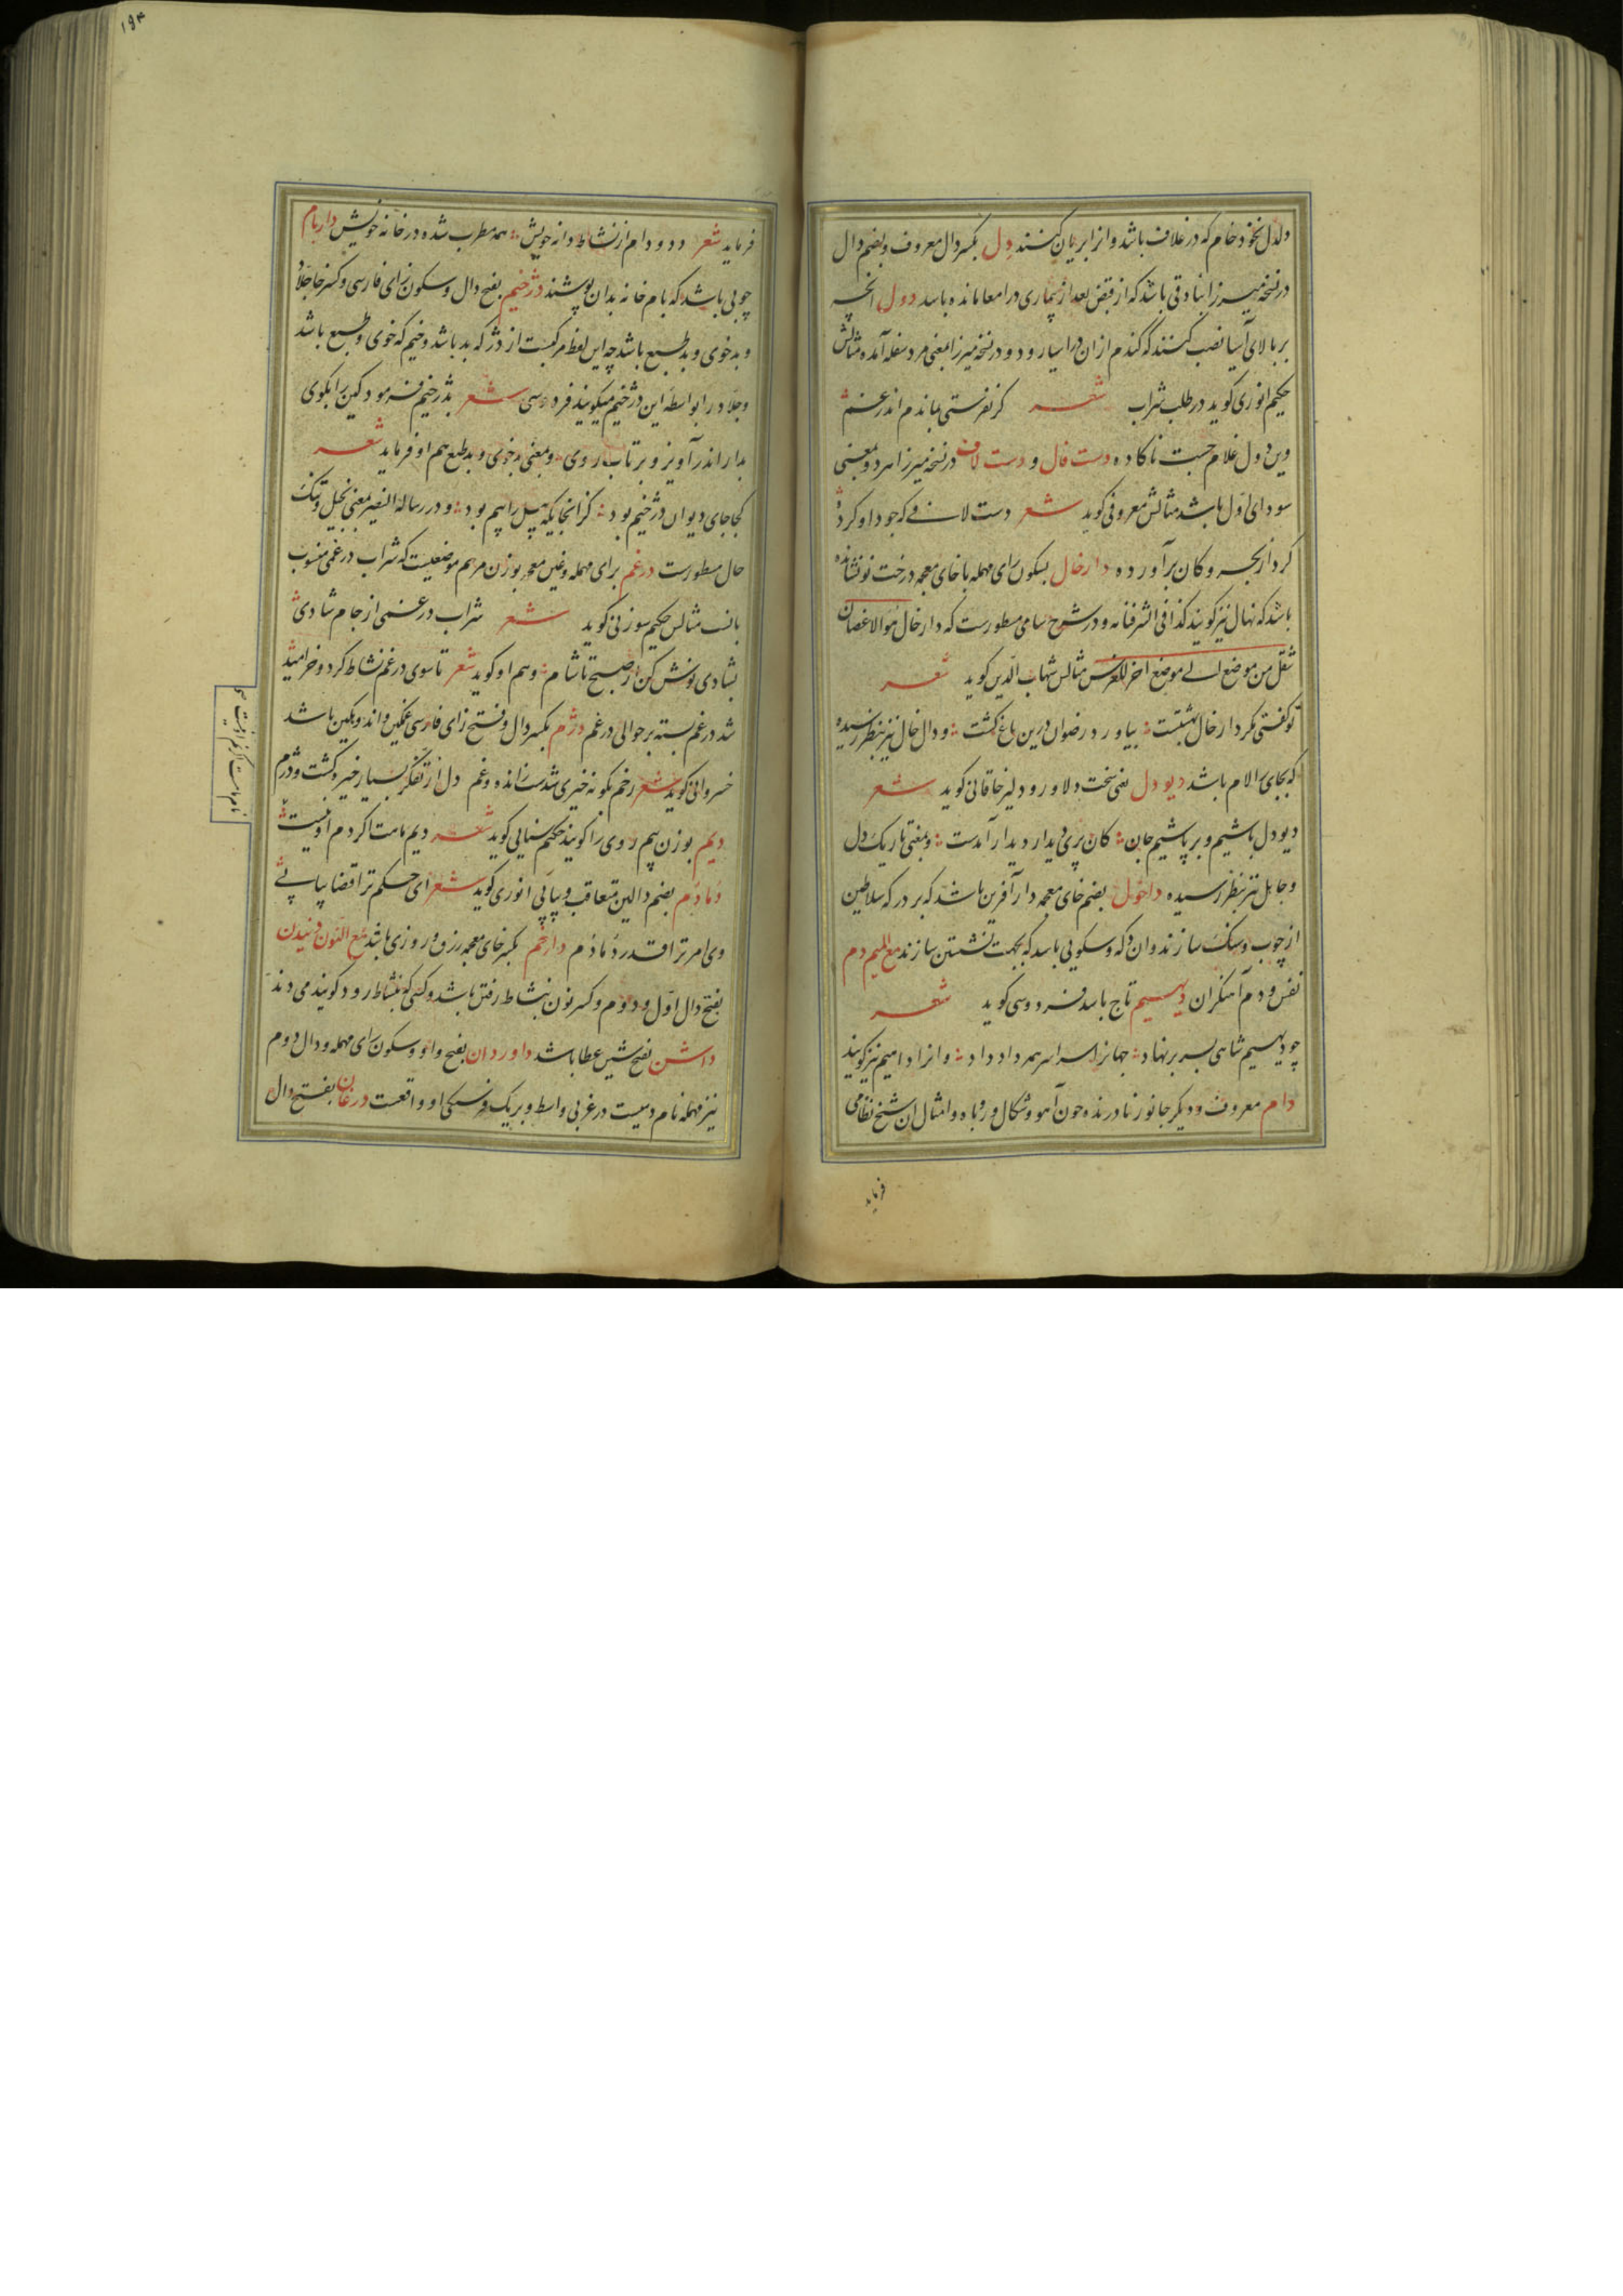 دلدل نخود خام که در غلاف باشد و انرا بریان کنند دل بکسر دال معروف و بضم دال
در نسخه میرزا بنادقی باشد که از قبض بعد از بیماری در امعا مانده باشد دول انچه
بر بالای آسیا نصب کنند که گندم از ان در اسیا رود و در نسخه میرزا بمعنی مرد سفله آمده مثالش
حکیم انوری گوید در طلب شراب شعر گر نفرستی بماندم اندر غم
وین دول غلام جست ناگاده دست فال و دست لاف در نسخه میرزا هر دو بمعنی
سودای اول باشد مثالش معروفی گوید شعر دست لافی که جود او کرده
کرد از بحر و کان برآورده دارخال بسکون رای مهمله با خای معجمه درخت نو نشانده
باشد که نهال نیز گویند کذافی الشرفنامه و در شرح سامی مسطورست که دارخال هو الاغصان
تنقل من موضع الی موضع اخر للغرس مثالش شهاب الدین گوید شعر
تو گفتی مگر دارخال بهشتست بیاورد رضوان درین باغ کشت و دال خال نیز بنظر رسیده
که بجای را لام باشد دیودل یعنی سخت دلاور و دلیر خاقانی گوید شعر
دیودل باشیم و بر پاشیم جان کان پری دیدار دیدار آمدست و بمعنی تاریک دل
و جاهل نیز بنظر رسیده داخول بضم خای معجمه دارآفرین باشد که بر درگه سلاطین
از چوب و سنگ سازند و ان دکه و سکویی باشد که بجهت نشستن سازند مع المیم دم
نفس و دم آهنگران دیهیم تاج باشد فردوسی گوید شعر
چو دیهیم شاهی بسر بر نهاد جهانرا سراسر همه داد داد و انرا دامیم نیز گویند
دام معروف و دیگر جانور نادرنده چون آهو و شکال و روباه و امثال ان شیخ نظامی
فرماید
۱۹۴
فرماید شعر دد و دام از نشاط دانه خویش همه مطرب شده در خانه خویش داربام
چوبی باشد که بام خانه بدان پوشند دژخیم بفتح دال و سکون زای فارسی و کسر خا جلاد
و بدخوی و بد طبع باشد چه این لفظ مرکبست از دژ که بد باشد و خیم که خوی و طبع باشد
و جلاد را بواسطه این دژخیم میگویند فردوسی شعر بدژخیم فرمود کین را بکوی
بدار اندر آویز و برتاب روی و بمعنی بدخوی و بد طبع هم او فرماید شعر
کجا جای دیوان دژخیم بود کز انجایگه پیل را بیم بود و در رساله النصیر بمعنی بخیل و تنک
حال مسطورست درغم برای مهمله و غین معجمه بوزن مرهم موضعیست که شراب درغمی منسوب
بانست مثالش حکیم سوزنی گوید شعر شراب درغمی از جام شادی
بشادی نوش کن از صبح تا شام و هم او گوید شعر تا سوی درغم نشاط کرد و خرامید
شد در غم بسته بر حوالی درغم دژم بکسر دال و فتح زای فارسی غمگین و اندوهگین باشد
خسروانی گوید شعر رخم بگونه خیری شدست از انده و غم دل از تفکر بسیار خیره گشت و دژم
دیم بوزن بیم روی را گویند حکیم سنایی گوید شعر دیم مات اکردم اونیست
دمادم بضم دالین متعاقب و پیاپی انوری گوید شعر ای حکم ترا قضا پیاپی
وی امر ترا قدر دمادم دارخم بکسر خای معجمه رزق و روزی باشد مع النون دنیدن
بفتح دال اول و دوم و کسر نون بنشاط رفتن باشد و کسی که بنشاط رود گویند می دند
داشن بفتح شین عطا باشد داوردان بفتح واو و سکون رای مهمله و دال دوم
نیز مهمله نام دهیست در غربی واسط و بر یک فرسنگی او واقعست درغان بفتح دال